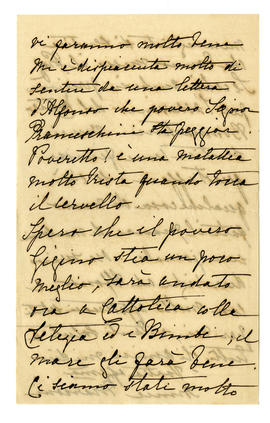 vi faranno molto bene
Mi è dispiaciuta molto di
sentire da una lettera
d'Alfonso che povero Signor
Franceschini sta peggior.
Poveretto! è una malattia
molto trista quando toca
il cervello.
Spero che il povero
Gigino stia un poco
meglio, sarà andato
ora a Cattolica colla
Letizia ed e Bimbi, il
mare gli farà bene.
Ci siamo state molto